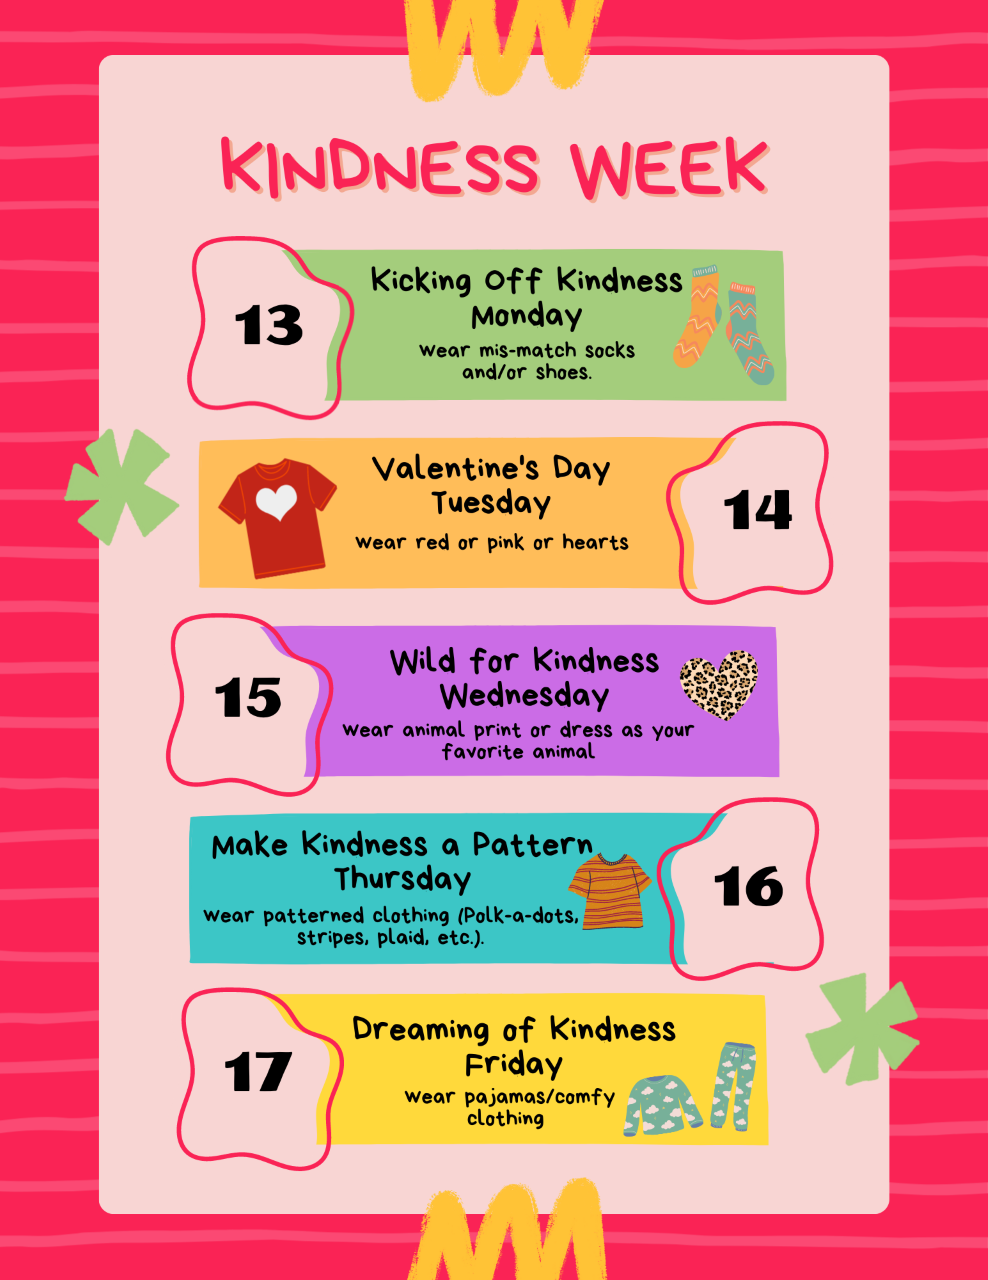 KINDNESS WEEK
13
Kicking Off Kindness
Monday
Wear mis-match socks
and/or shoes.
Valentine's Day
Tuesday
Wear red or pink or hearts
14
15
Wild for Kindness
Wednesday
Wear animal print or dress as your
favorite animal
Make Kindness a Pattern
Thursday
Wear patterned clothing (Polk-a-dots,
stripes, plaid, etc.).
16
17
Dreaming of Kindness
Friday
Wear pajamas/comfy
clothing